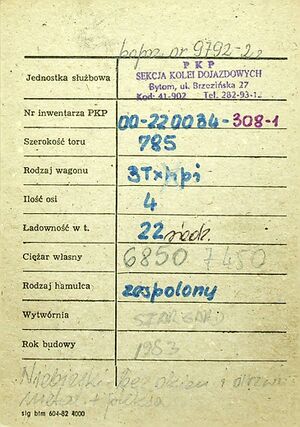 nr 9792-2
PKP
Jednostka służbowa SEKCJA KOLEI DOJAZDOWYCH
Bytom, ul. Brzezińska 27
Kod: 41-902 Tel. 282-93-1
Nr inwentarza PKP 00-220034-308-1
Szerokość toru 785
Rodzaj wagonu 3Txhpi
Ilość osi 4
Ładowność w t. 22
Ciężar własny 6850 7450
Rodzaj hamulca zespolony
Wytwórnia
Rok budowy 1983
Niebieski bez okien i drzwi
slg btm 604-82 4000